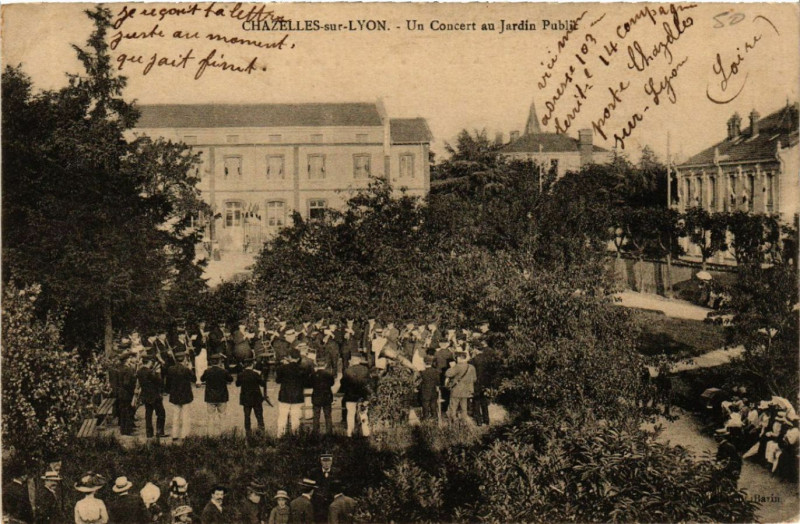 Je reçoit ta lettre
juste au moment
que j'ait finit.
CHAZELLES-sur-LYON. - Un Concert au Jardin Public
adresse 103
territle 14 Compagnie
poste Chazelles
sur-Lyon
(Loire)
50